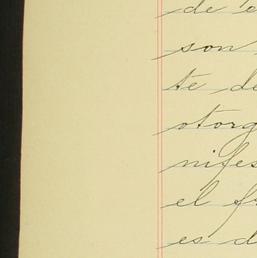 de c
son
te de
otorg
nifes
el f
es d